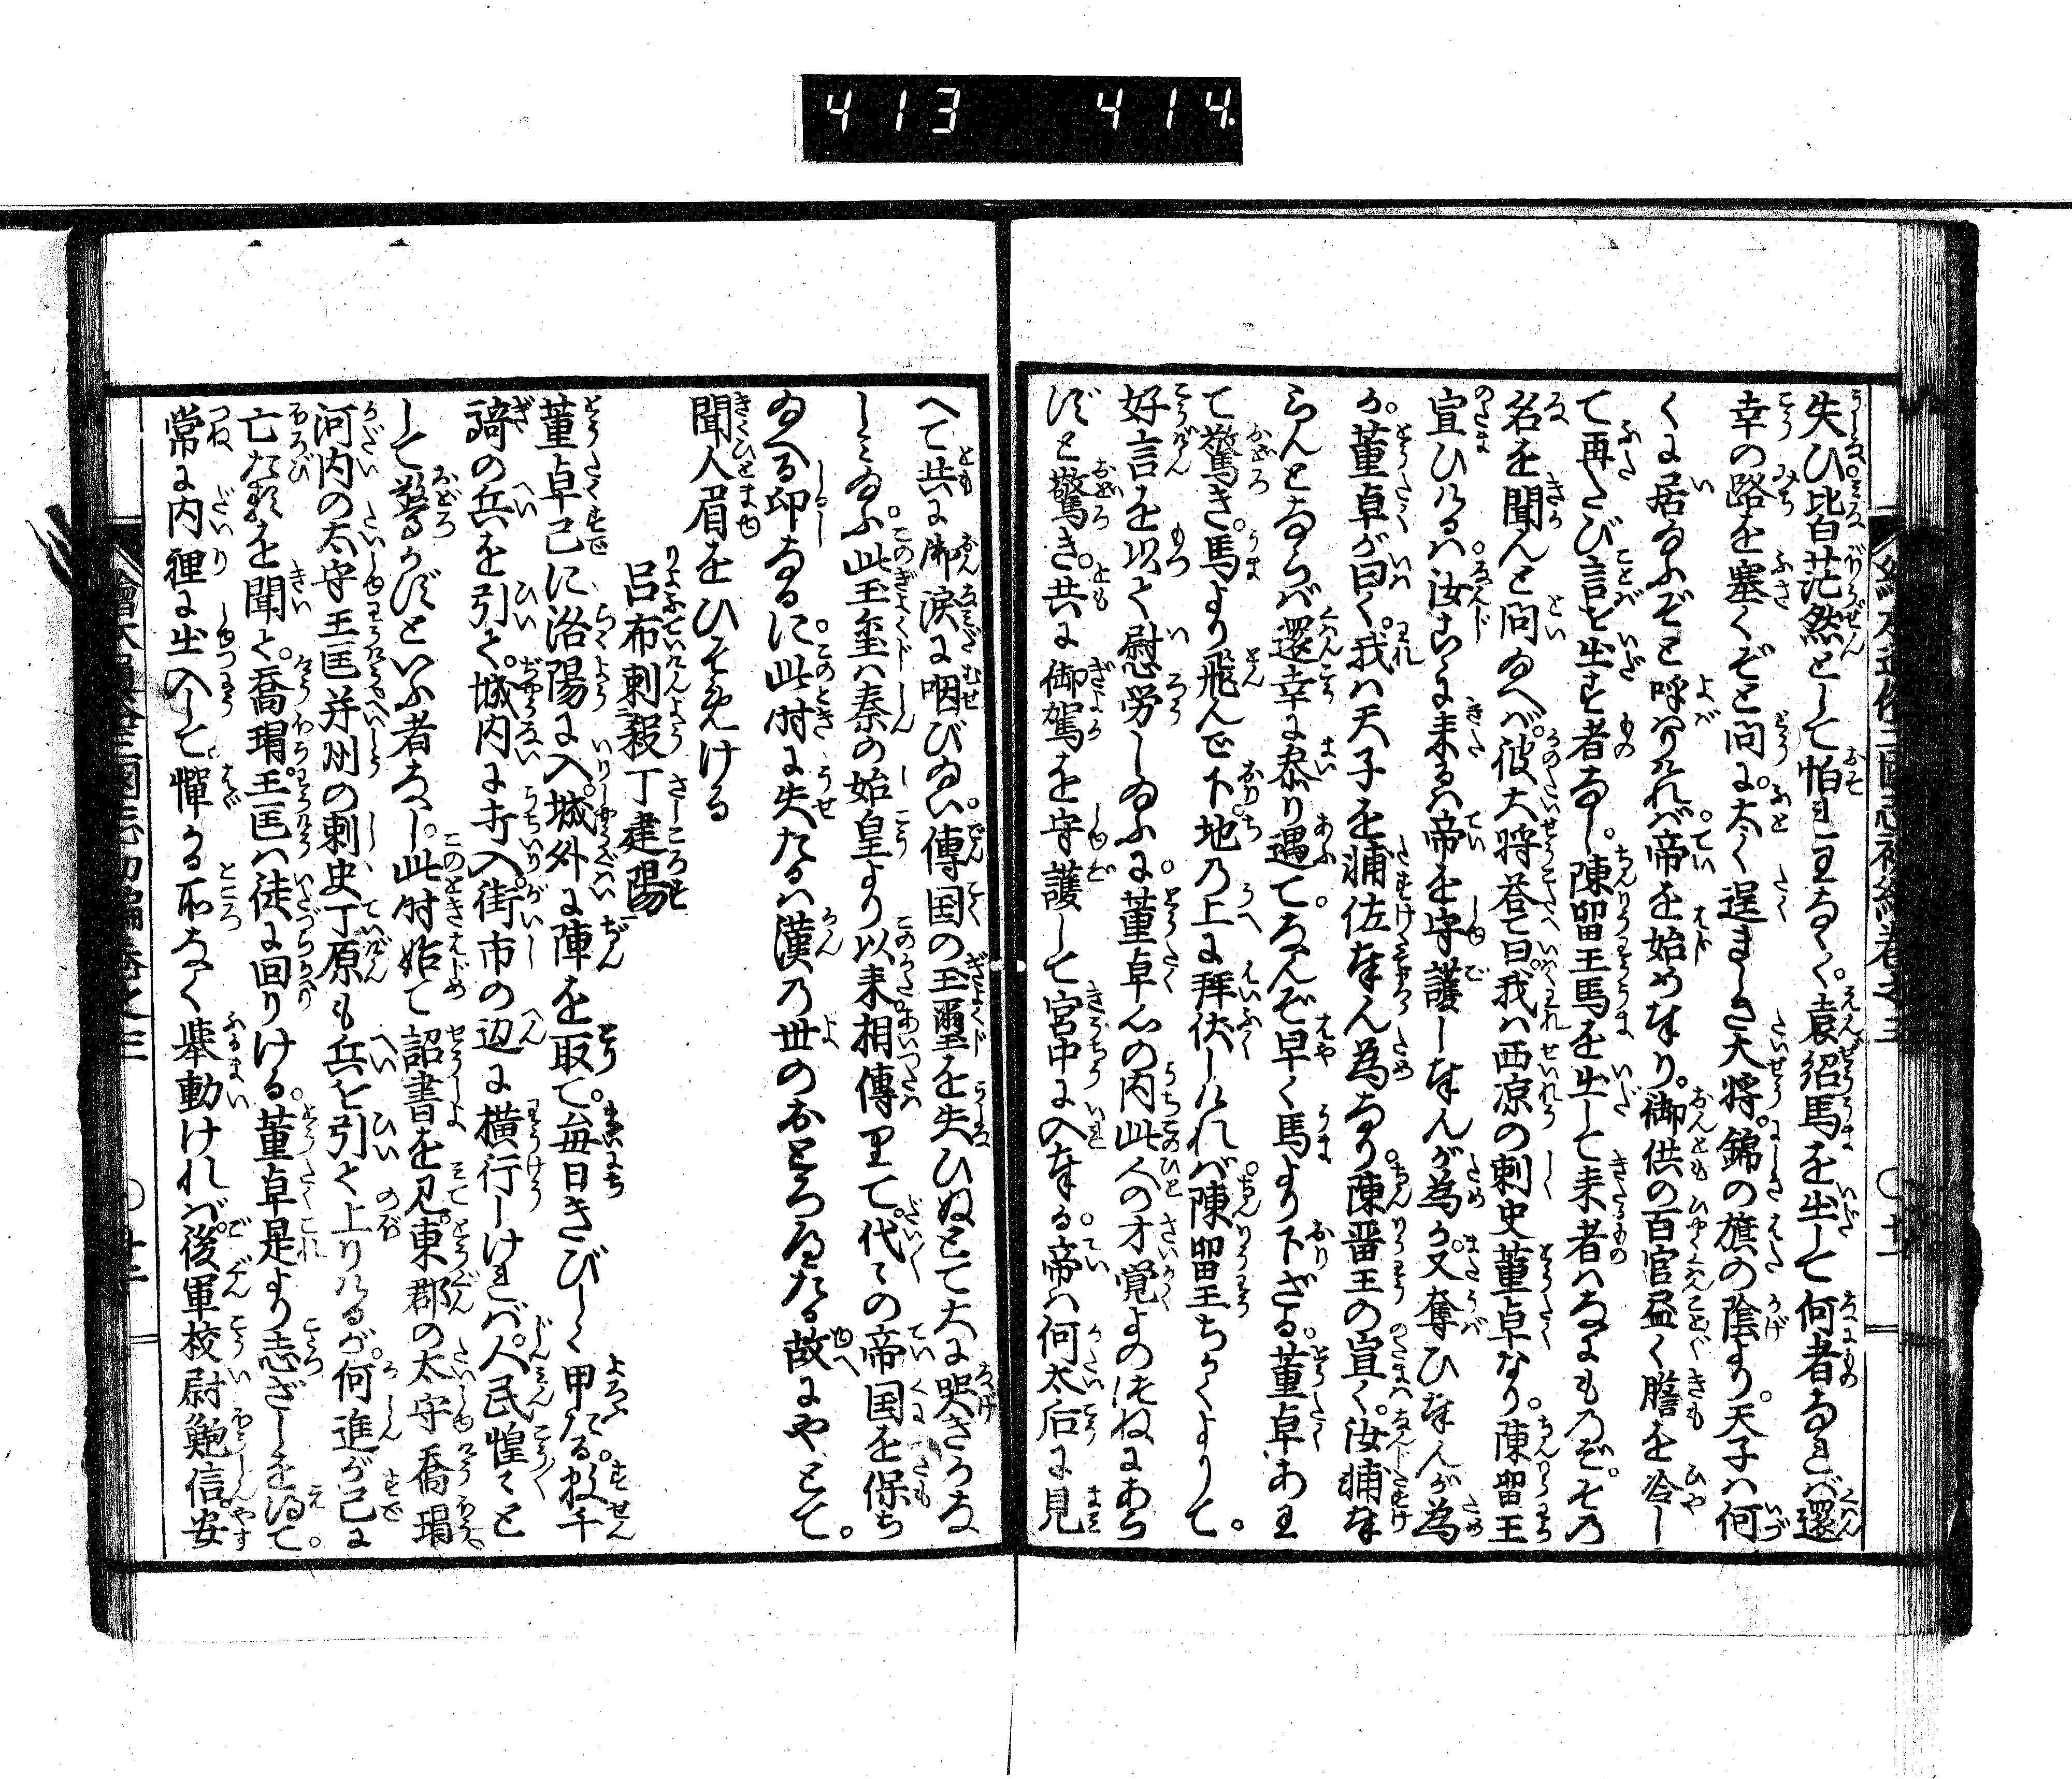 413 414
失ひ皆茫然として怕れ至なく。袁紹馬を出して何者なれば還
幸の路を塞くぞと問に。太く逞ましき大将。錦の旗の陰より。天子ハ何
くに居給ふぞと呼ハりけれバ帝を始め奉り。御供の百官尽く膽を冷し
て再たび言を出す者なし。陳留王馬を出して来者ハなにものぞ。その
名を聞んと問給へバ。彼大将答て曰。我ハ西凉の刺史董卓なり。陳留王
宣ひけるハ。汝こゝに来るハ帝を守護し奉んが為か。又奪ひ奉んが為
か。董卓が曰く。我ハ天子を補佐奉ん為なり。陳留王の宣く。汝補奉
らんとならバ還幸に参り遇て。なんぞ早く馬より下ざる。董卓あハ
て驚き。馬より飛んで下地の上に拝伏しけれバ。陳留王ちかくよりて。
好言を以て慰労し給ふに。董卓心の内此人の才覚よのつねにあら
ずと驚き。共に御駕を守護して宮中に入奉る。帝ハ何太后に見
へて共に御涙に咽び給い。傳国の玉璽を失ひぬとて大に哭きかな
しミ給ふ。此玉璽ハ秦の始皇より以来相傳りて。代々の帝国を保ち
給へる印なるに。此時に失たるハ漢の世のおとろへたる故にやとて。
聞人眉をひそめける
呂布刺殺丁建陽
董卓已に洛陽に入。城外に陣を取て。毎日きびしく甲たる数千
騎の兵を引て。城内に打入。街市の辺に横行しけれバ。人民惶々と
して驚かずといふ者なし。此時始て詔書を見。東郡の太守喬瑁
河内の太守王匡并州の刺史丁原も兵を引て上りけるが。何進が已に
亡たるを聞て。喬瑁。王匡ハ徒に回りける。董卓是より志ざしを得て。
常に内裡に出入して憚かる所なく挙動けれバ。後軍校尉鮑信。安